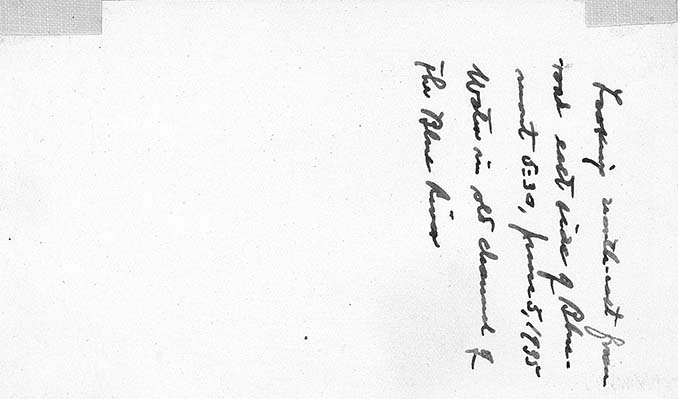 Looking north-east from
road east side of Blue-
mont 5:30, June 5, 1935
Water in old channel of
the Blue River